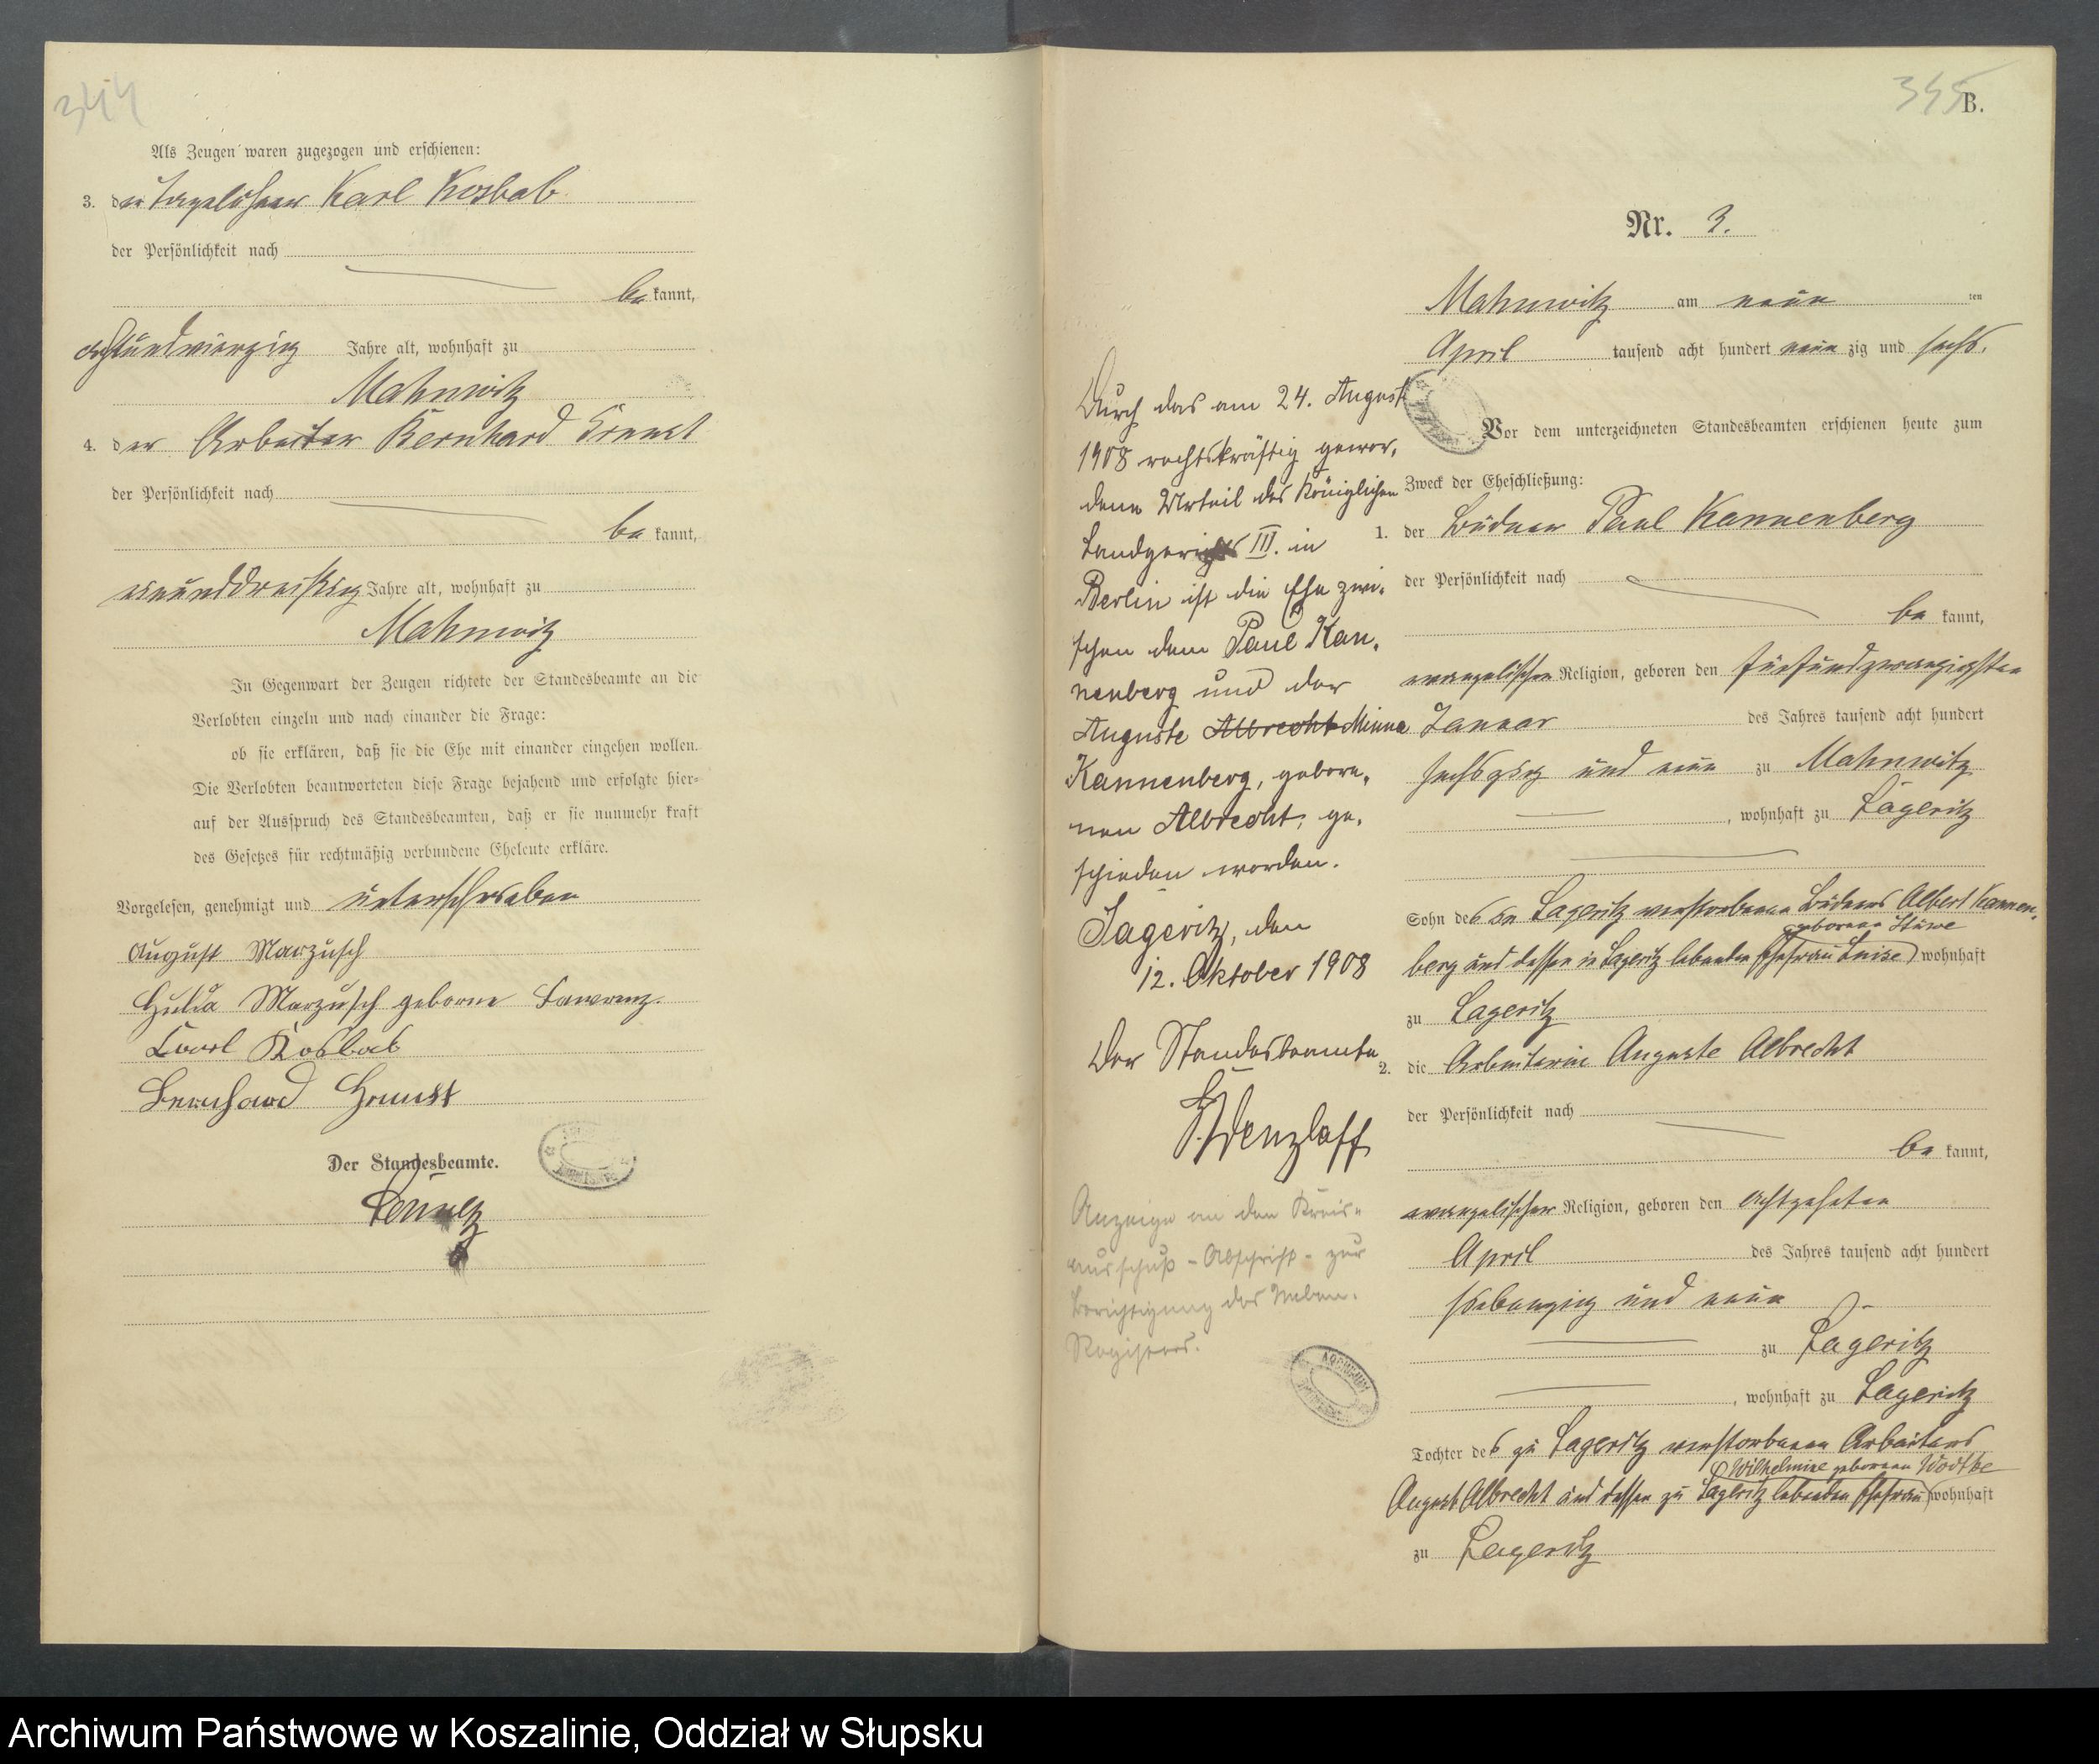 344
Als Zeugen waren zugezogen und erschienen:
3. der Tagelöhner Karl Kosbab
der Persönlichkeit nach
be kannt,
achtundvierzig Jahre alt, wohnhaft zu
Mahnwitz
4. der Arbeiter Bernhard
der Persönlichkeit nach
be kannt,
neununddreißig Jahre alt, wohnhaft zu
Mahnwitz
In Gegenwart der Zeugen richtete der Standesbeamte an die
Verlobten einzeln und nach einander die Frage:
ob sie erklären, daß sie die Ehe mit einander eingehen wollen.
Die Verlobten beantworteten diese Frage bejahend und erfolgte hier-
auf der Ausspruch des Standesbeamten, daß er sie nunmehr kraft
des Gesetzes für rechtmäßig verbundene Eheleute erkläre.
Vorgelesen, genehmigt und unterschrieben
August Marzusch
Hulda Marzusch geborne Lawrenz.
Karl Kosbab
Bernhard
Der Standesbeamte.
345
B.
Nr. 3.
Mahnwitz am neun ten
April tausend acht hundert neun zig und sechs.
Vor dem unterzeichneten Standesbeamten erschienen heute zum
Zweck der Eheschließung:
1. der Büdner Paul Kannenberg
der Persönlichkeit nach
be kannt,
evangelischer Religion, geboren den fünfundzwanzigsten
Januar des Jahres tausend acht hundert
sechszig und neun zu Mahnwitz
, wohnhaft zu Lageritz
Sohn des in Lageritz verstorbenen Büdners Albert Kannen-
geborene Stüwe
berg und dessen in Lageritz lebenden Ehefrau Luise wohnhaft
zu Lageritz
2. die Arbeiterin Auguste Albrecht
der Persönlichkeit nach
be kannt,
evangelischer Religion, geboren den achtzehnten
April des Jahres tausend acht hundert
siebenzig und neun
zu Lageritz
, wohnhaft zu Lageritz
Tochter des zu Lageritz verstorbenen Arbeiters
Wilhelmine geborenen Wodtke
August Albrecht und dessen zu Lageritz lebenden Ehefrau wohnhaft
zu Lageritz
Durch das am 24. August
1908 rechtskräftig gewor-
dene Urteil des Königlichen
Landgerichts III. in
Berlin ist die Ehe zwi-
schen dem Paul Kan-
nenberg und der
Auguste Albrecht Minna
Kannenberg, gebore-
nen Albrecht, ge-
schieden worden.
Jageritz, den
12. Oktober 1908
Der Standesbeamte
Wenzlaff
Anzeige an den Kreis-
ausschuß - Abschrift - zur
Berichtigung des Neben-
Registers.
Archiwum Państwowe w Koszalinie, Oddział w Słupsku